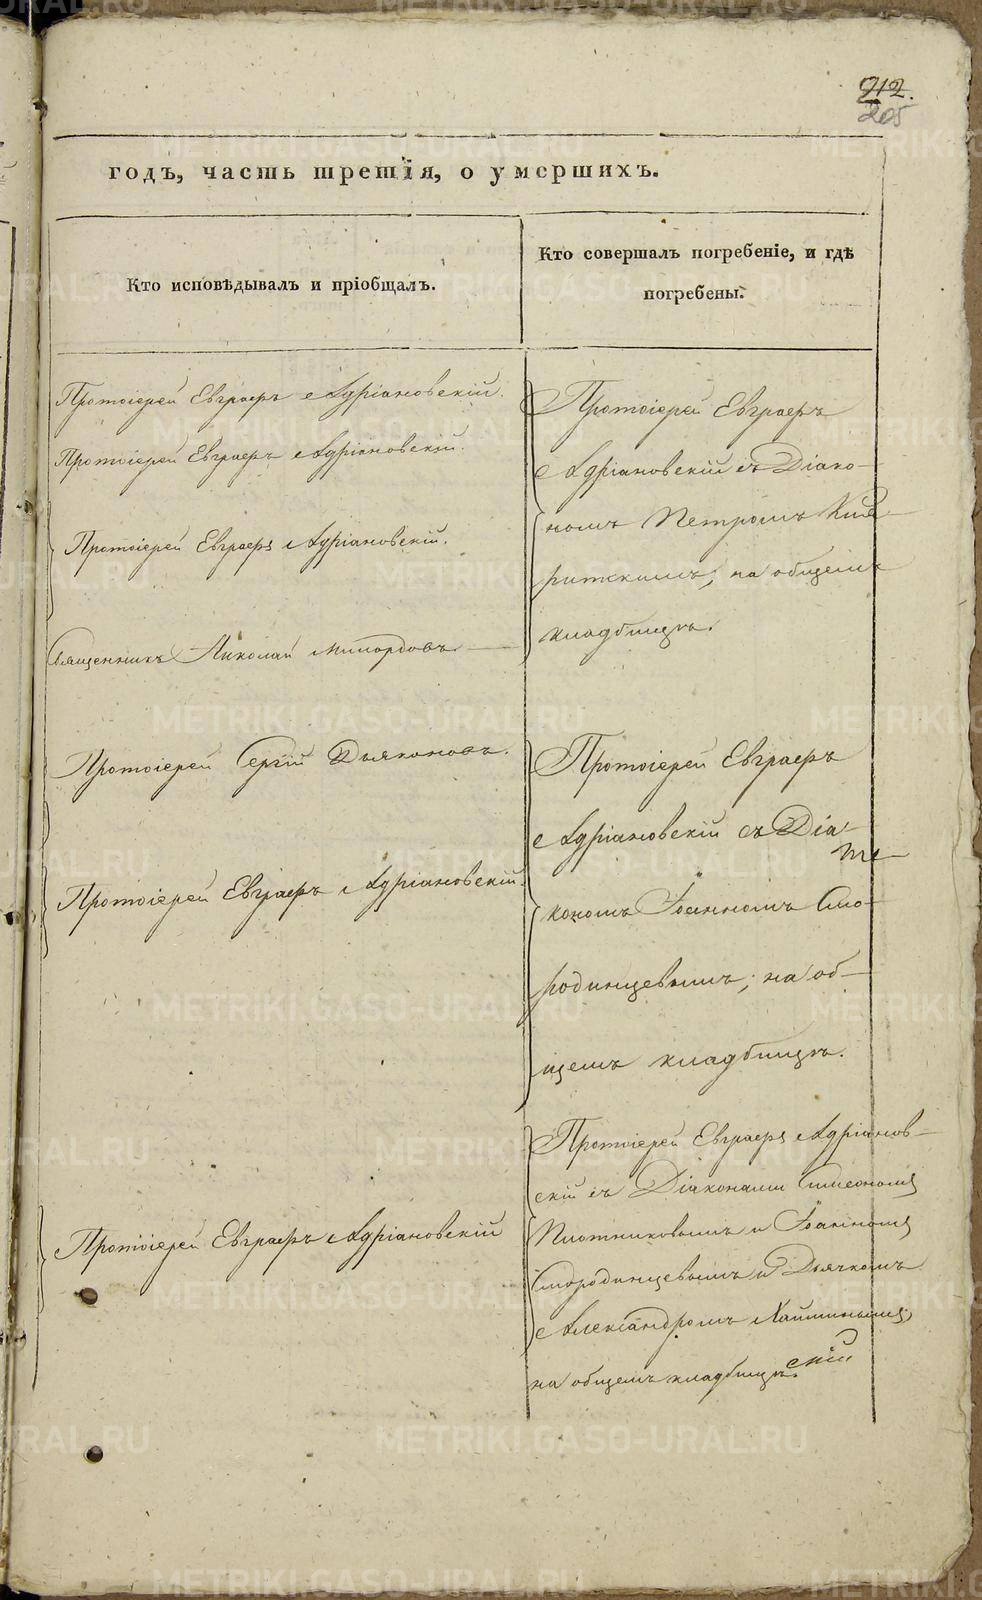 212.
205
годъ, часть третія, о умершихъ.
Кто исповѣдывалъ и пріобщалъ.
Кто совершалъ погребеніе, и гдѣ
погребены.
Протоіерей Евграфъ Адріановскій.
Протоіерей Евграфъ Адріановскій.
Протоіерей Евграфъ Адріановскій.
Священникъ Николай Милордовъ
Протоіерей Сергій Дьяконовъ.
Протоіерей Евграфъ Адріановскій.
Протоіерей Евграфъ Адріановскій
Протоіерей Евграфъ
Адріановскій съ Діако-
номъ Петромъ
на общемъ
кладбищѣ.
Протоіерей Евграфъ
Адріановскій съ Діа-
кономъ Іоанномъ Смо-
родинцевымъ; на об-
щемъ кладбищѣ.
Протоіерей Евграфъ Адріанов-
скій съ Діаконами Симеономъ
Плотниковымъ и Іоанномъ
Смородинцевымъ и Дьячкомъ
Александромъ
на общемъ кладбищѣ.
METRIKI.GASO-URAL.RU